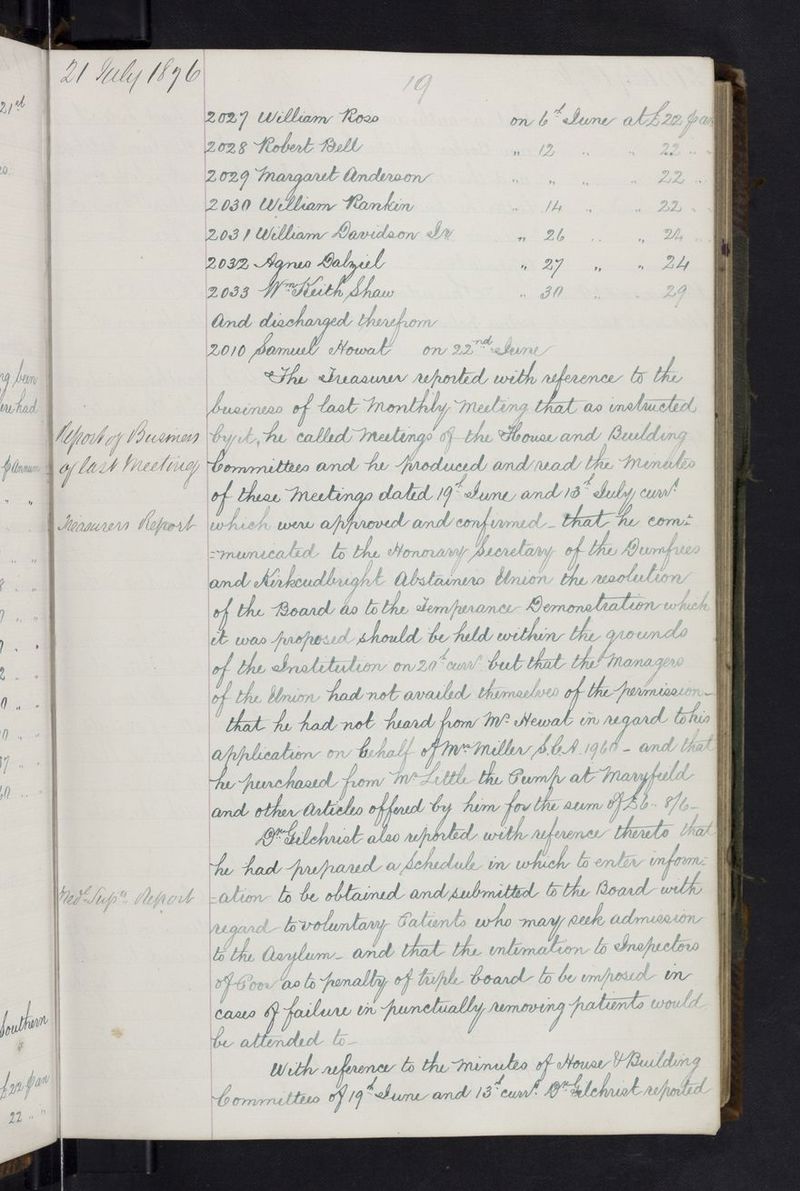 21 July 1876
19
2027 William Ross on 6th June at £22 p an
2028 Robert Bell " 12 " " 22 " "
2029 Margaret Anderson " " " " 22 " "
2030 William Rankin " 14 " " 22 " "
2031 William Davidson Jr " 26 " " 24 " "
2032 Agnes Dalziel " 27 " " 24
2033 Wm Keith Shaw " 30 " " 29
And discharged therefrom
2010 Samuel Howat on 22nd June
The Treasurer reported with reference to the
business of last Monthly Meeting that as instructed
Report of Business
by it, he called Meetings of the House and Building
of last Meeting
Committees and he produced and read the Minutes
of these Meetings dated 19th June and 13th July currt
Treasurers Report
which were approved and confirmed – that he com=
=municated to the Honorary Secretary of the Dumfries
and Kirkcudbright Abstainers Union the resolution
of the Board as to the Temperance Demonstration which
it was proposed should be held within the grounds
of the Institution on 20th currt but that the Managers
of the Union had not availed themselves of the permission –
that he had not heard from Mr Hewat in regard to his
application on behalf of Mrs Miller S.C.A. – and that
he purchased from Mr Little the Pump at Maryfield
and other Articles offered by him for the sum of £6 " 8/6 –
Dr Gilchrist also reported with reference thereto that
he had prepared a Schedule in which to enter inform=
Medl Supts Report
=ation to be obtained and submitted to the Board with
regard to voluntary Patients who may seek admission
to the Asylum – and that the intimation to Inspectors
of Poor as to penalty of triple board to be imposed in
cases of failure in punctually removing patients would
be attended to –
With reference to the Minutes of House & Building
Committees of 19th June and 13th currt Dr Gilchrist reported
21st
been
had
p annum
Southern
£22 p an
22 " "